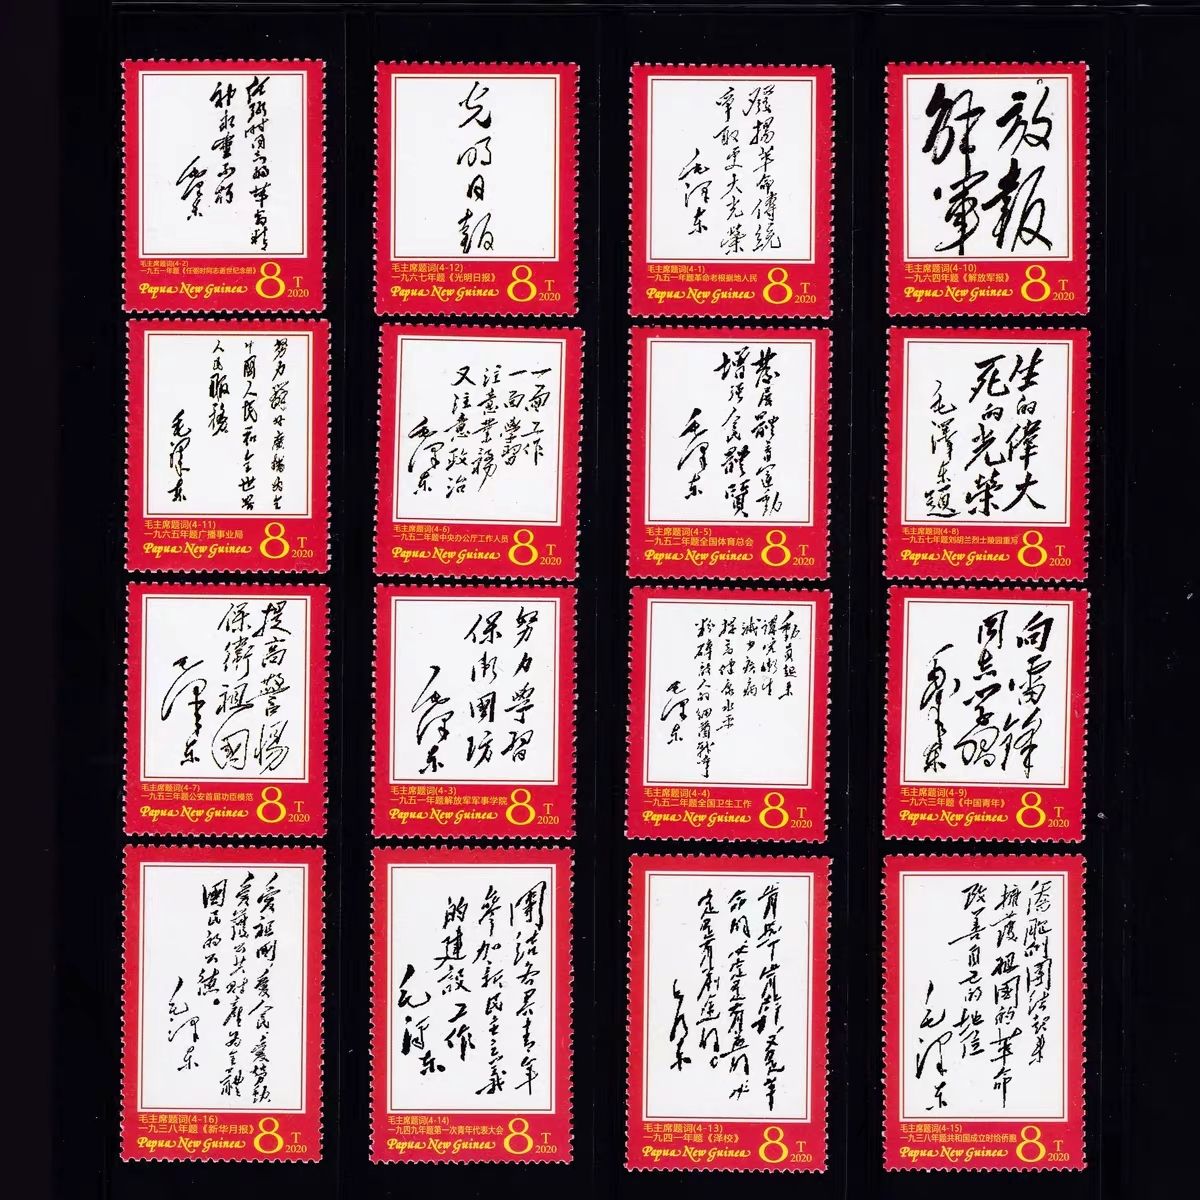 任弼时同志的革命精
神永垂不朽
毛泽东
毛主席题词(4-2)
一九五一年题《任弼时同志逝世纪念册》
Papua New Guinea 8T 2020
光明日報
毛主席题词(4-12)
一九六七年题《光明日报》
Papua New Guinea 8T 2020
發揚革命傳統
爭取更大光榮
毛澤东
毛主席题词(4-1)
一九五一年题革命老根据地人民
Papua New Guinea 8T 2020
解放
軍報
毛主席题词(4-10)
一九六四年题《解放军报》
Papua New Guinea 8T 2020
努力辦好廣播為全
中國人民和全世界
人民服務
毛澤东
毛主席题词(4-11)
一九六五年题广播事业局
Papua New Guinea 8T 2020
一面工作
一面學習
注意業務
又注意政治
毛澤东
毛主席题词(4-6)
一九五二年题中央办公厅工作人员
Papua New Guinea 8T 2020
發展體育運動
增强人民體質
毛澤东
毛主席题词(4-5)
一九五二年题全国体育总会
Papua New Guinea 8T 2020
生的偉大
死的光榮
毛澤东題
毛主席题词(4-8)
一九五七年题刘胡兰烈士陵园重写
Papua New Guinea 8T 2020
提高警惕
保衛祖國
毛澤东
毛主席题词(4-7)
一九五三年题公安首届功臣模范
Papua New Guinea 8T 2020
努力學習
保衛國防
毛澤东
毛主席题词(4-3)
一九五一年题解放军军事学院
Papua New Guinea 8T 2020
動員起來
講究衛生
減少疾病
提高健康水平
粉碎敌人的细菌戰爭
毛澤东
毛主席题词(4-4)
一九五二年题全国卫生工作
Papua New Guinea 8T 2020
向雷鋒
同志学習
毛澤东
毛主席题词(4-9)
一九六三年题《中国青年》
Papua New Guinea 8T 2020
愛祖國,愛人民,愛勞動,
愛護公共財產為全體
國民的公德。
毛澤东
毛主席题词(4-16)
一九三八年题《新华月报》
Papua New Guinea 8T 2020
團結各界青年
參加新民主主義
的建設工作
毛澤东
毛主席题词(4-14)
一九四九年题第一次青年代表大会
Papua New Guinea 8T 2020
肯学肯幹,又是革
命的,必定是有益的,必
定是有前途的。
毛泽东
毛主席题词(4-13)
一九四一年题《泽校》
Papua New Guinea 8T 2020
僑胞們團結起來
擁護祖國的革命
改善自己的地位
毛澤东
毛主席题词(4-15)
一九三八年题共和国成立时给侨胞
Papua New Guinea 8T 2020